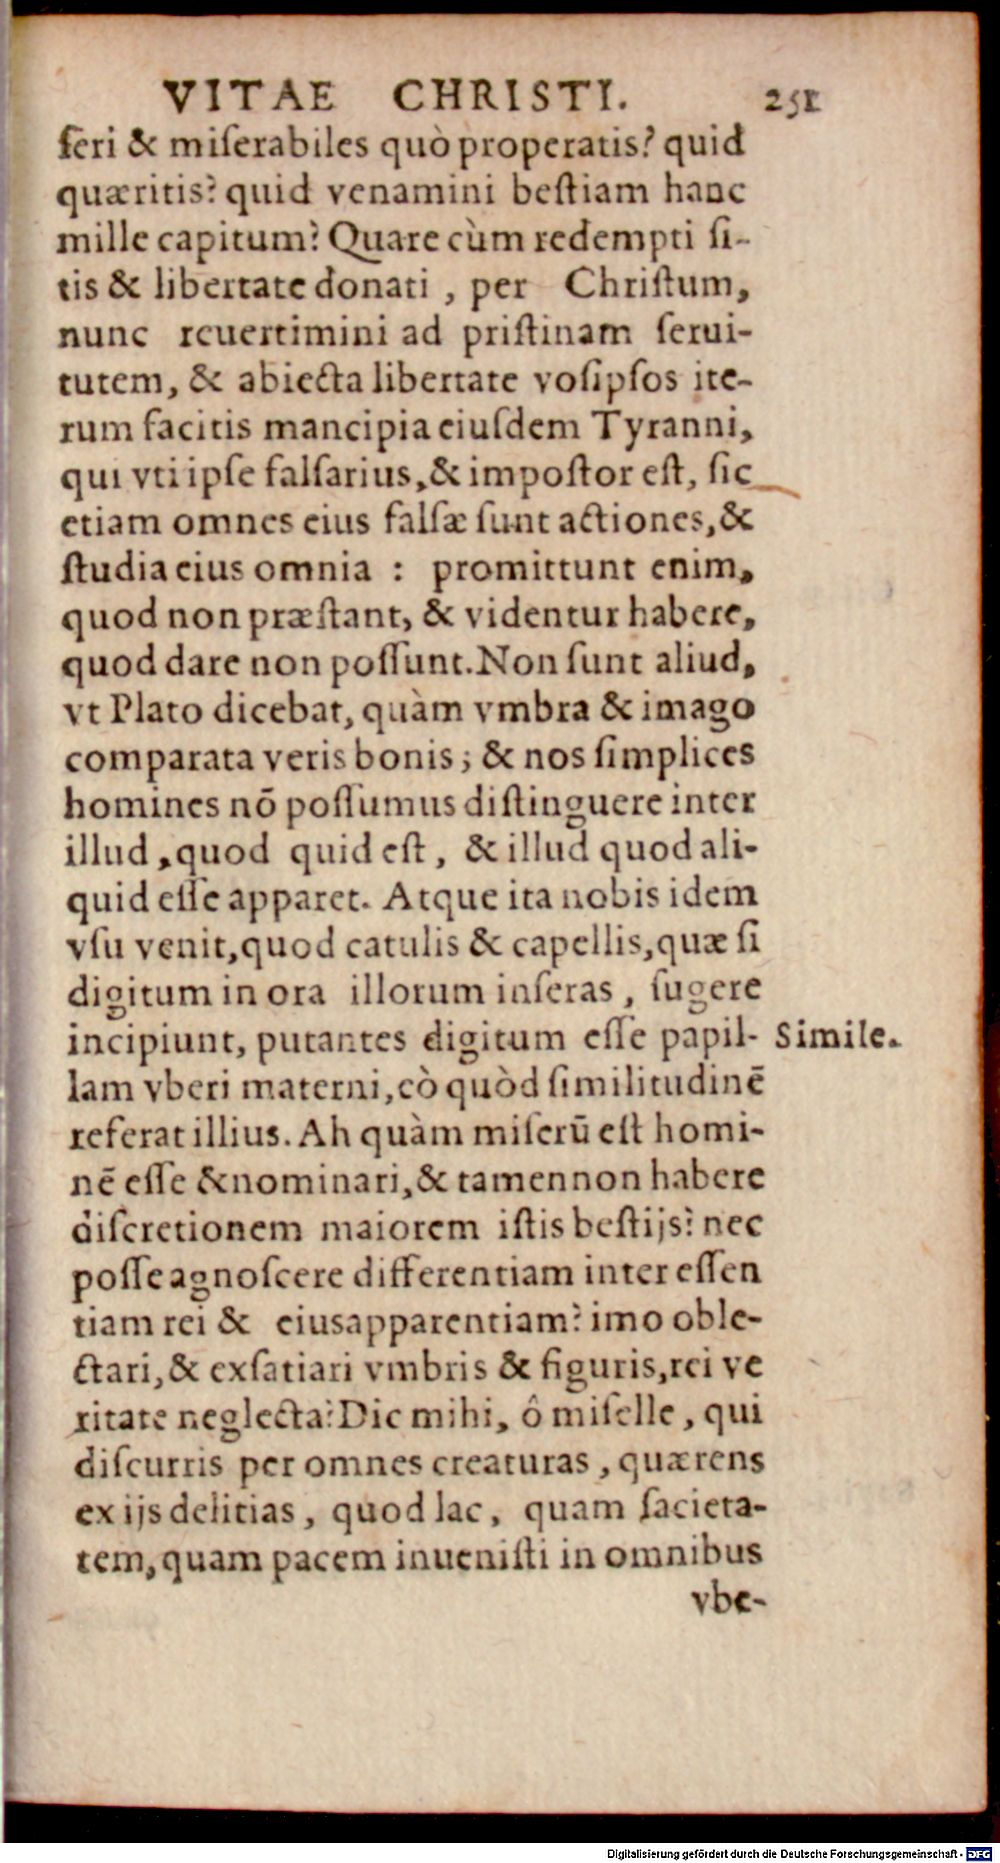 VITAE CHRISTI. 251
ſeri & miſerabiles quò properatis? quid
quæritis? quid venamini beſtiam hanc
mille capitum? Quare cùm redempti ſi-
tis & libertate donati , per Chriſtum,
nunc reuertimini ad priſtinam ſerui-
tutem, & abiecta libertate voſipſos ite-
rum facitis mancipia eiuſdem Tyranni,
qui vti ipſe falſarius, & impoſtor eſt, ſic
etiam omnes eius falſæ ſunt actiones, &
ſtudia eius omnia : promittunt enim,
quod non præſtant, & videntur habere,
quod dare non poſſunt. Non ſunt aliud,
vt Plato dicebat, quàm vmbra & imago
comparata veris bonis ; & nos ſimplices
homines nō poſſumus diſtinguere inter
illud , quod quid eſt , & illud quod ali-
quid eſſe apparet. Atque ita nobis idem
vſu venit, quod catulis & capellis, quæ ſi
digitum in ora illorum inſeras , ſugere
incipiunt, putantes digitum eſſe papil- Simile.
lam vberi materni, eò quòd ſimilitudinē
referat illius. Ah quàm miſerū eſt homi-
nē eſſe & nominari, & tamen non habere
diſcretionem maiorem iſtis beſtijs? nec
poſſe agnoſcere differentiam inter eſſen
tiam rei & eius apparentiam? imo oble-
ctari, & exſatiari vmbris & figuris, rei ve
ritate neglecta? Dic mihi, ô miſelle , qui
diſcurris per omnes creaturas , quærens
ex ijs delitias , quod lac , quam ſacieta-
tem, quam pacem inueniſti in omnibus
vbe-
Digitalisierung gefördert durch die Deutsche Forschungsgemeinschaft - DFG